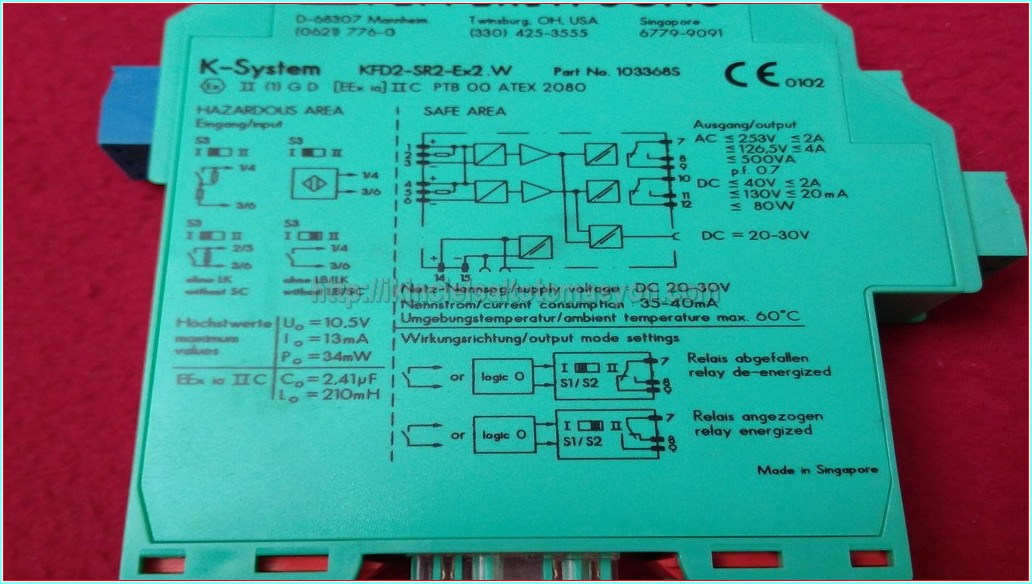 D-68307 Mannheim
(0621) 776-0
Twinsburg, OH, USA
(330) 425-3555
Singapore
6779-9091
K-System KFD2-SR2-Ex2.W Part No. 103368S CE 0102
Ex II (1) G D [EEx ia] IIC PTB 00 ATEX 2080
HAZARDOUS AREA
Eingang/input
S3
I II
1/4
3/6
S3
I II
1/4
3/6
S3
I II
2/5
3/6
ohne LK
without SC
S3
I II
1/4
3/6
ohne LB/LK
without LB/SC
Höchstwerte
maximum
values
Uo = 10.5V
Io = 13mA
Po = 34mW
EEx ia IIC
Co = 2.41µF
Lo = 210mH
SAFE AREA
1 +
2
3 −
4 +
5
6 −
7
8
9
10
11
12
+ −
14 15
Ausgang/output
AC ≤ 253V ≤ 2A
≤ 126.5V ≤ 4A
≤ 500VA
p.f. 0.7
DC ≤ 40V ≤ 2A
≤ 130V ≤ 20mA
≤ 80W
DC = 20-30V
Netz-Nennspg/supply voltage : DC 20-30V
Nennstrom/current consumption : 35-40mA
Umgebungstemperatur/ambient temperature max. 60°C
Wirkungsrichtung/output mode settings
or logic 0
I II
S1/S2
7
8
9
Relais abgefallen
relay de-energized
or logic 0
I II
S1/S2
7
8
9
Relais angezogen
relay energized
Made in Singapore